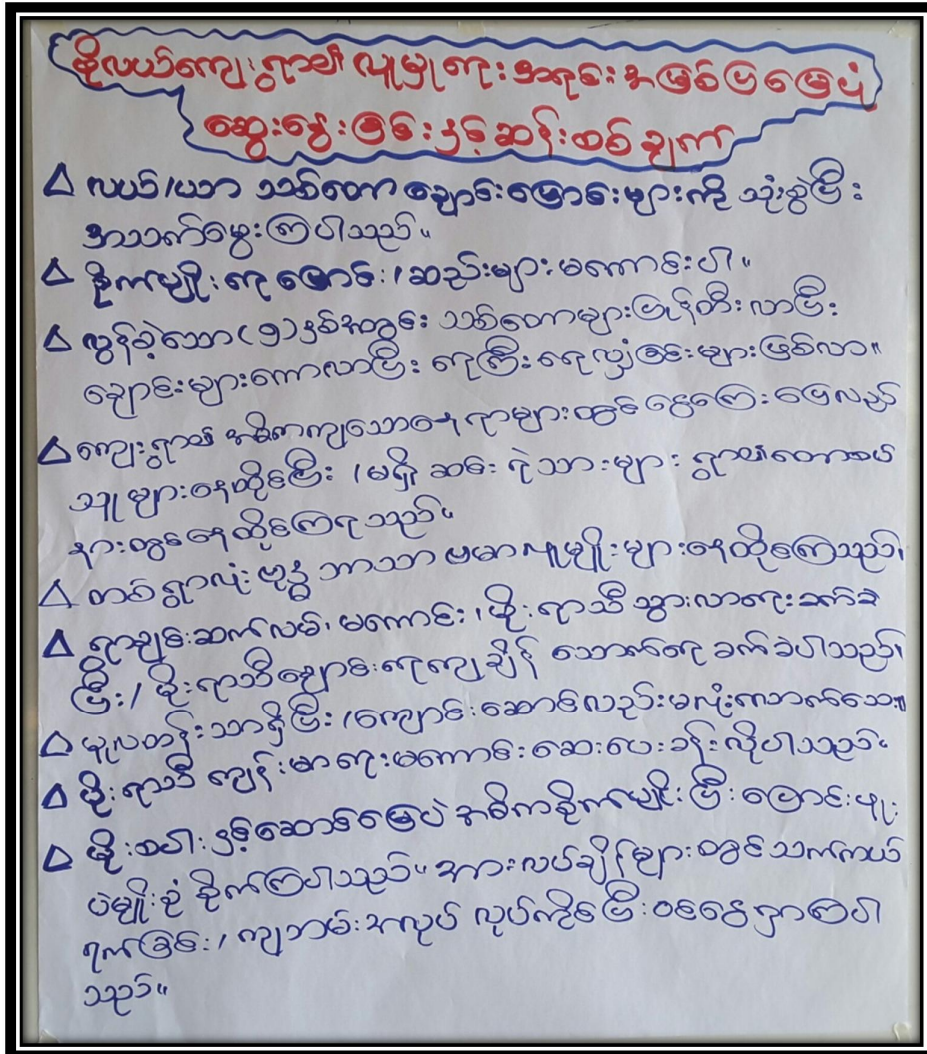 စိုလယ်ကျေးရွာ၏ လူမှုရေးအရင်းအမြစ်ပြမြေပုံ
ဆွေးနွေးခြင်းနှင့်ဆန်းစစ်ချက်
∆ လယ်/ယာ သစ်တော ချောင်းမြောင်းများကို သုံးစွဲပြီး
အသက်မွေးကြပါသည်။
∆ စိုက်ပျိုးရေမြောင်း/ဆည်းများမကောင်းပါ။
∆ လွန်ခဲ့သော(၅)နှစ်အတွင်း သစ်တောများပြုန်တီးလာပြီး
ချောင်းများကောလာပြီး ရေကြီးရေလျှံခြင်းများဖြစ်လာ။
∆ ကျေးရွာ၏ အဓိကကျသောနေရာများတွင် ငွေကြေးပြေလည်
သူများနေထိုင်ပြီး /မရှိဆင်းရဲသားများ ရွာ၏တောစပ်
နားတွင်နေထိုင်ကြရသည်။
∆ တစ်ရွာလုံးဗုဒ္ဓဘာသာ ဗမာလူမျိုးများနေထိုင်ကြသည်၊
∆ ရွာချင်းဆက်လမ်း မကောင်း၊ မိုးရာသီသွားလာရေးခက်ခဲ
ပြီး/ မိုးရာသီချောင်းရေကျချိန် သောက်ရေ ခက်ခဲပါသည်၊
∆ မူလတန်းသာရှိပြီး /ကျောင်းဆောင်လည်းမလုံးလောက်သေး။
∆ မိုးရာသီ ကျန်းမာရေးမကောင်းဆေးပေးခန်းလိုပါသည်။
∆ မိုးစပါးနှင့်ဆောင်မြေပဲ အဓိကစိုက်ပျိုးပြီးပြောင်းဖူး
ပဲမျိုးစုံ စိုက်ကြပါသည်။ အားလပ်ချိန်များတွင်သက်ကယ်
ရက်ခြင်း/ ကျဘမ်းအလုပ် လုပ်ကိုင်ပြီးဝင်ငွေရှာကြပါ
သည်။